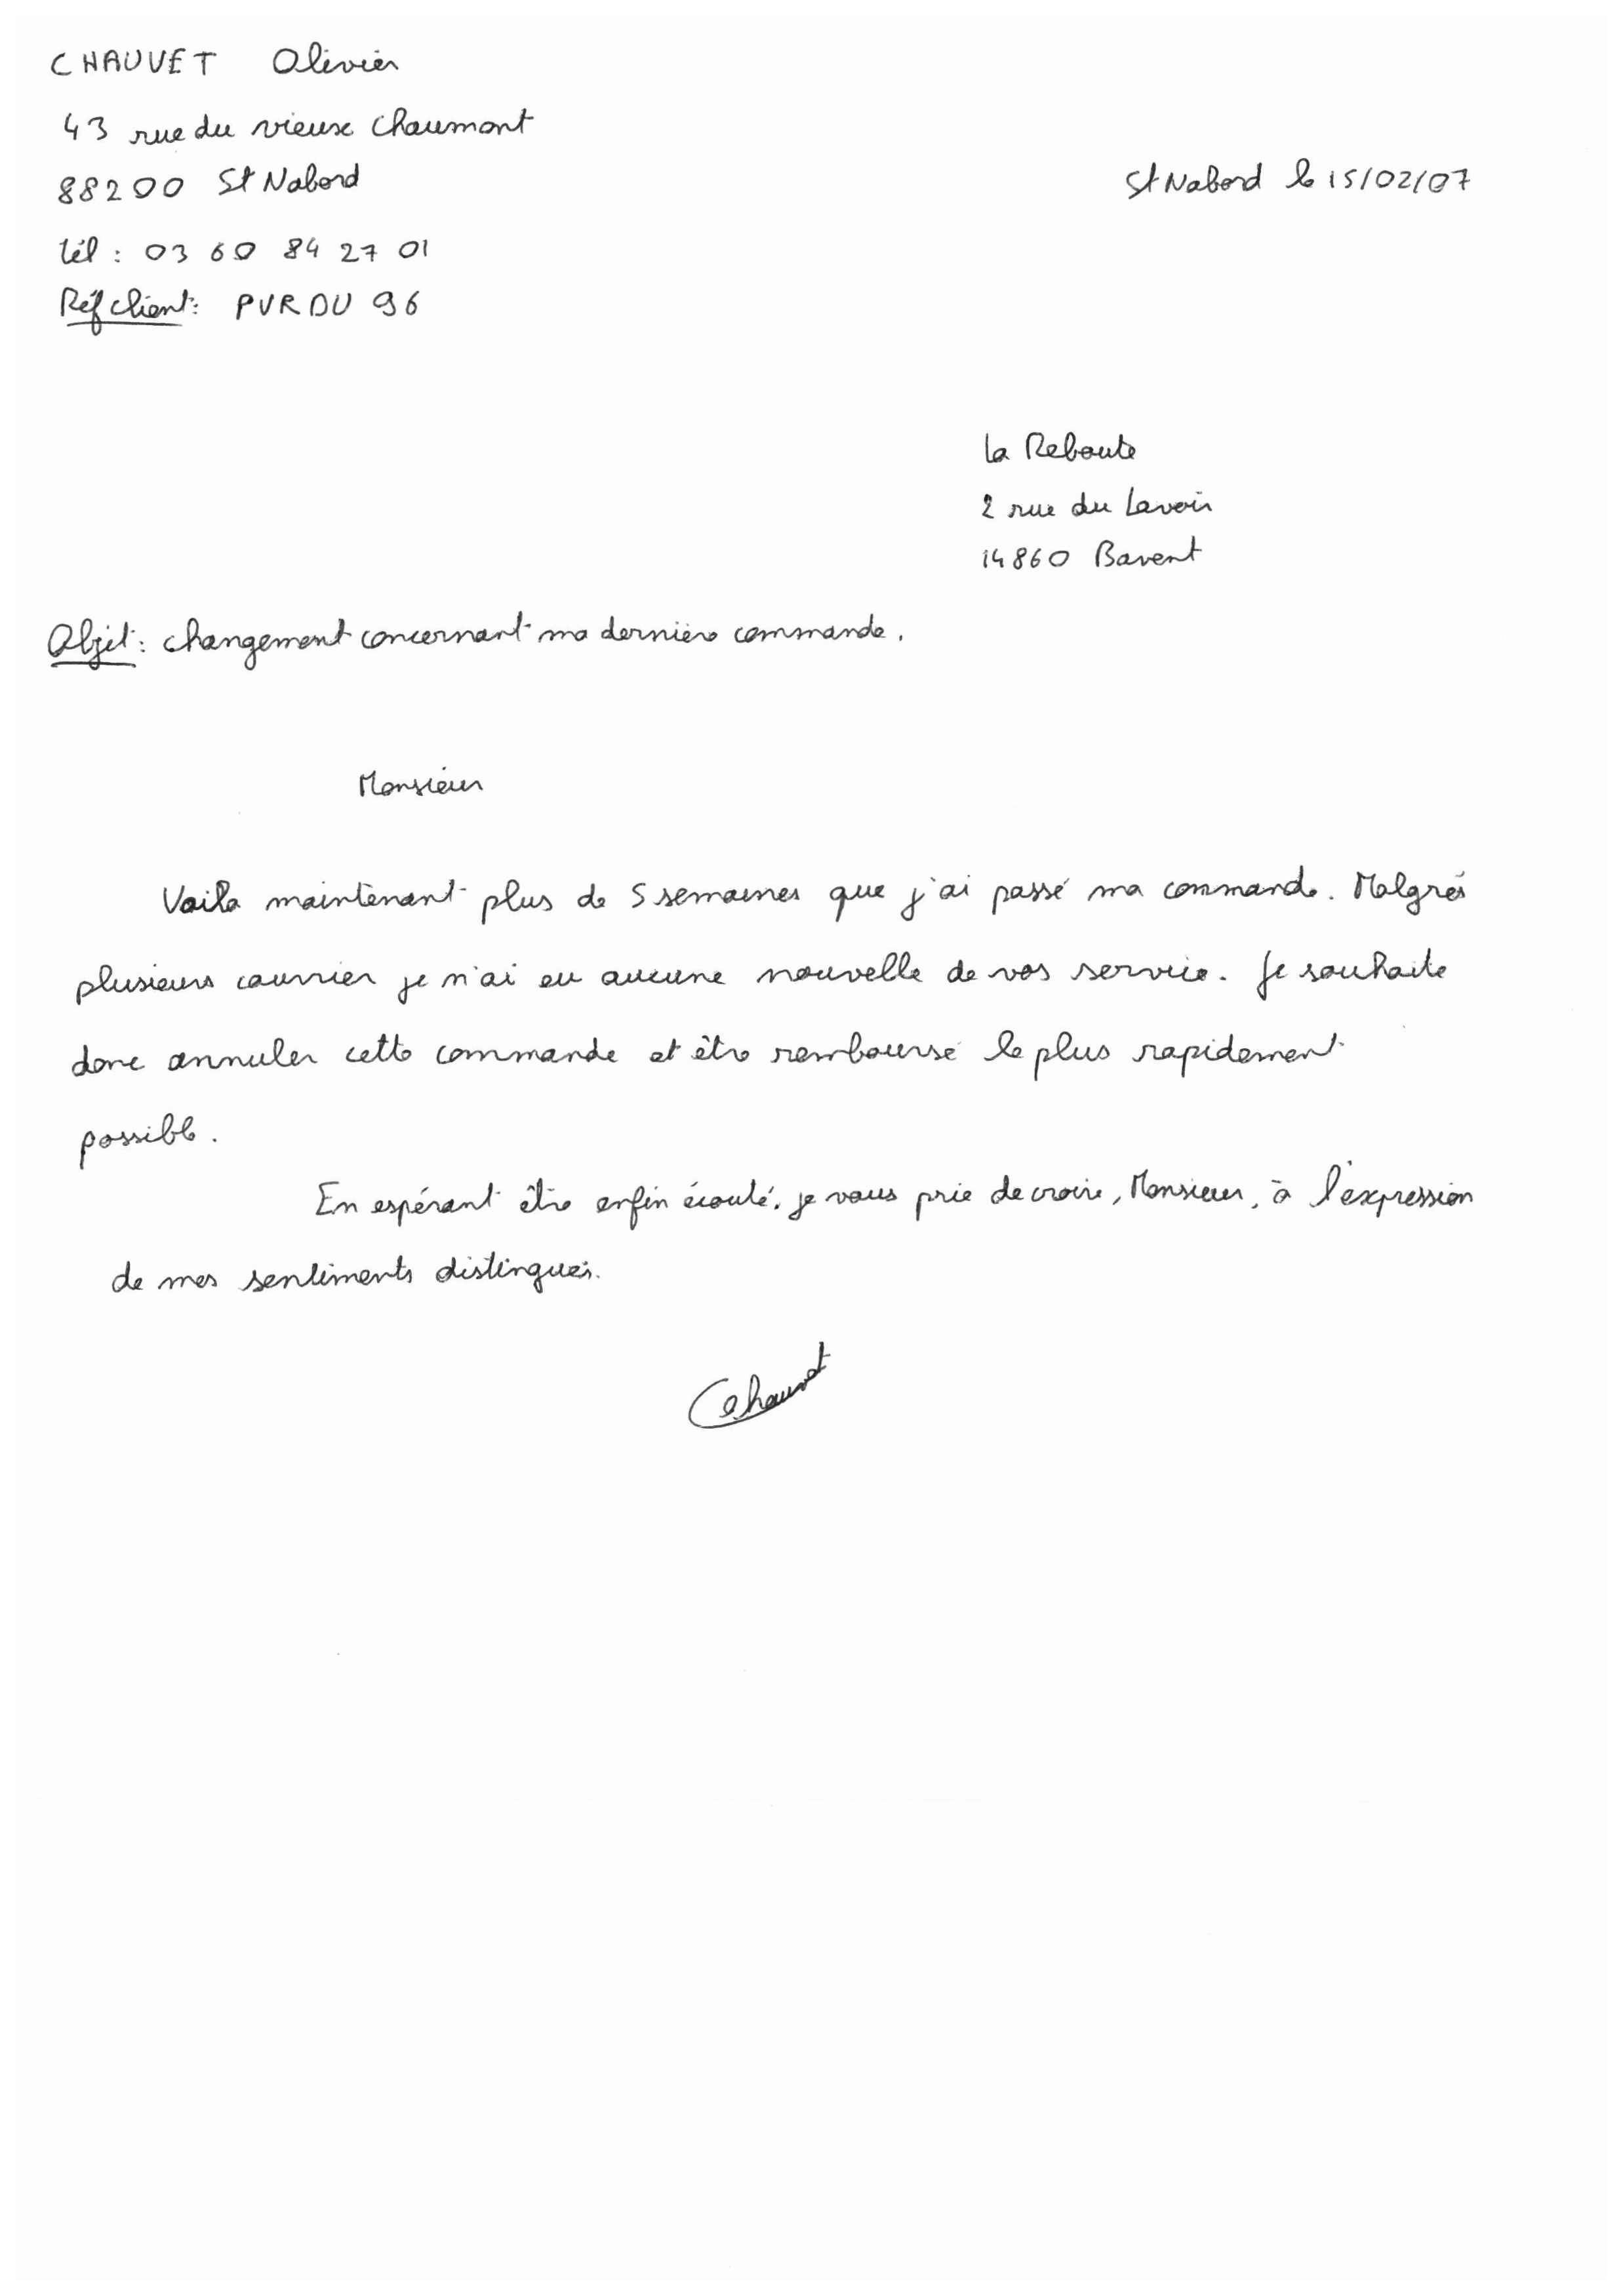 CHAUVET Olivier
43 rue du vieux Chaumont
88200 St Nabord
St Nabord le 15/02/07
tél : 03 60 84 27 01
Réf client : PVRDU 96
La Reboute
2 rue du Lavoir
14860 Bavent
Objet : changement concernant ma dernière commande.
Monsieur
Voila maintenant plus de 5 semaines que j'ai passé ma commande. Malgrés
plusieurs courrier je n'ai eu aucune nouvelle de vos service. Je souhaite
donc annuler cette commande et être remboursé le plus rapidement
possible.
En espérant être enfin écouté, je vous prie de croire, Monsieur, à l'expression
de mes sentiments distingués.
Chauvet